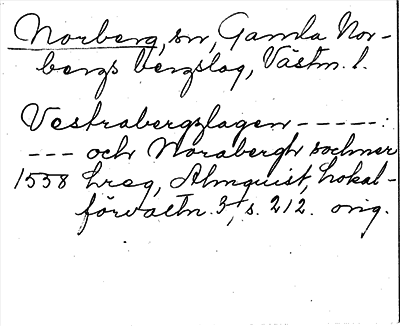 Norberg, sn, Gamla Nor-
bergs bergslag, Västm. l.
Vestrabergzlagen -----:
--- och Norabergh sochner
1538 hreg, Almquist, Lokal-
förvaltn. 3, s. 212. orig.